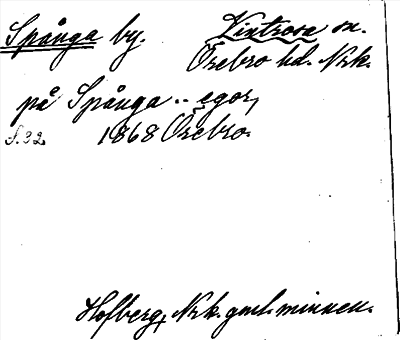 Spånga by. Lixtrosa sn.
Örebro hd. Nrk.
på Spånga .. egor,
S. 32. 1868 Örebro.
Hofberg, Nrk. gml. minnen.